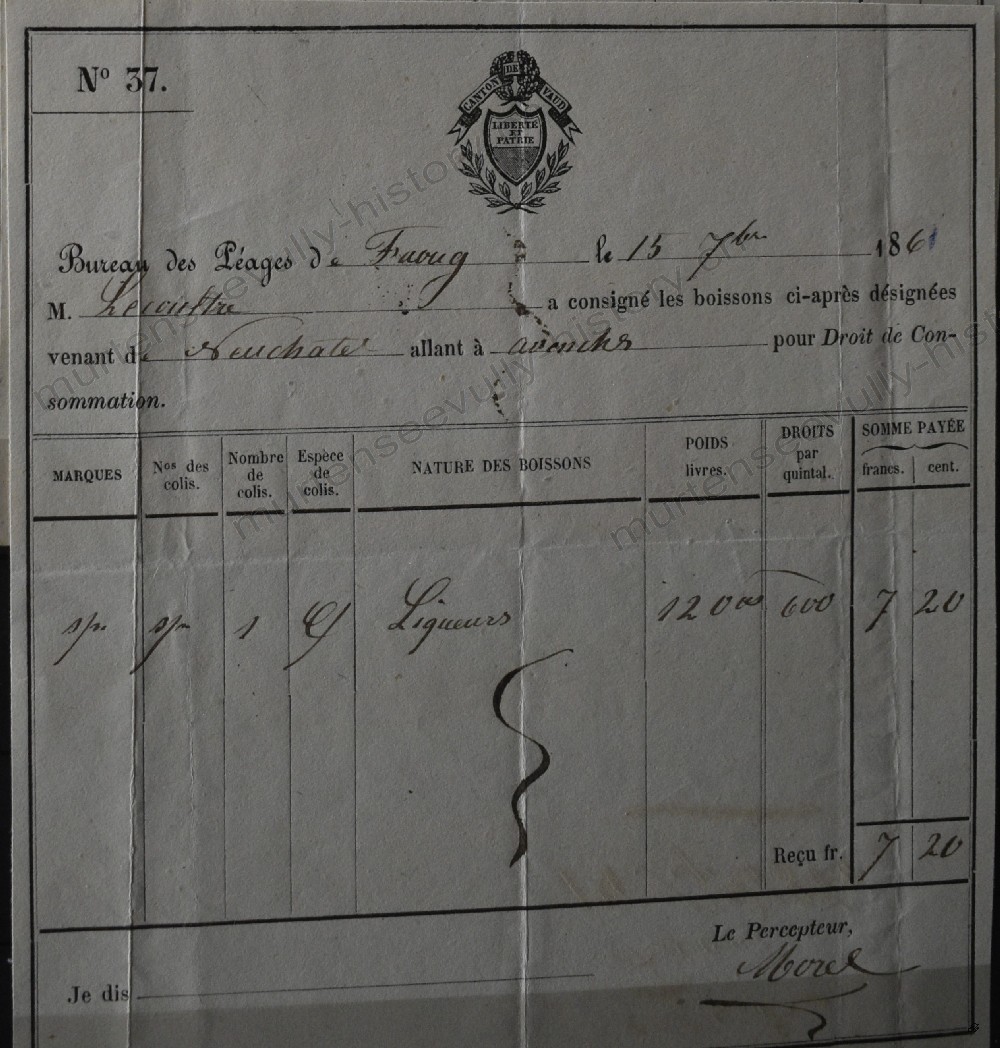 Nº 37.
CANTON DE VAUD
LIBERTÉ
ET
PATRIE
Bureau des Péages de Faoug le 15 7bre 1861
M. Lecoultre a consigné les boissons ci-après désignées
venant de Neuchatel allant à avenches pour Droit de Con-
sommation.
MARQUES
Nos des
colis.
Nombre
de
colis.
Espèce
de
colis.
NATURE DES BOISSONS
POIDS
livres.
DROITS
par
quintal.
SOMME PAYÉE
francs. cent.
1 Liqueurs 120 00 600 7 20
Reçu fr. 7 20
Le Percepteur,
Morel
Je dis
murtenseevully-history
murtenseevully-history
murtenseevully-history